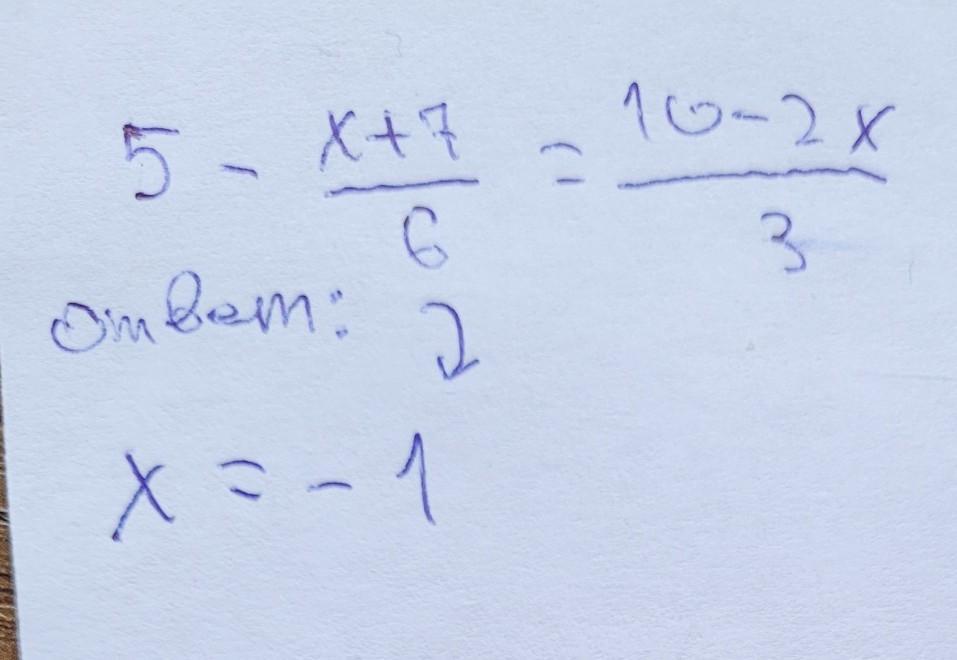 5 - (x+7)/6 = (10-2x)/3
ответ: 2
x = -1